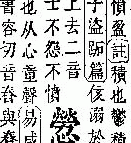 憤盈註積也鬱
子盜跖篇侅溺於
上去二音
士不怨不憤
也从心童聲易咸
書容切音舂與舂